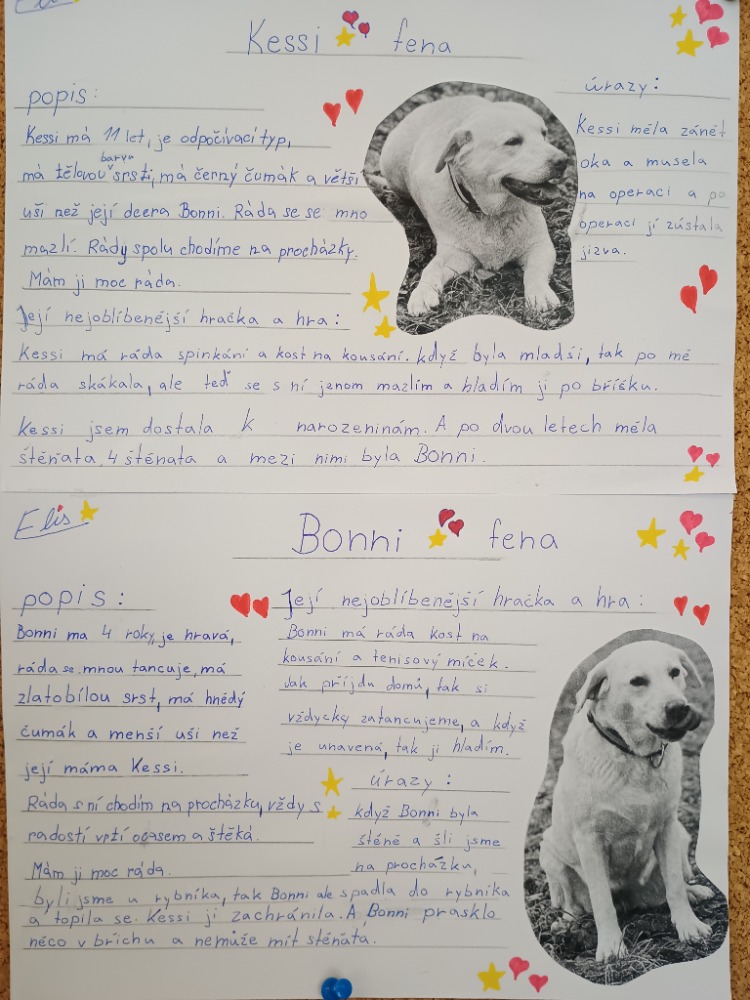 Kessi fena
popis:
Kessi má 11 let, je odpočívací typ,
barvu
má tělovou srsti, má černý čumák a větší
uši než její dcera Bonni. Ráda se se mno
mazlí. Rády spolu chodíme na procházky.
Mám ji moc ráda.
úrazy:
Kessi měla zánět
oka a musela
na operaci a po
operaci jí zůstala
jizva.
Její nejoblíbenější hračka a hra:
Kessi má ráda spinkání a kost na kousání. když byla mladší, tak po mě
ráda skákala, ale teď se s ní jenom mazlím a hladím ji po bříšku.
Kessi jsem dostala k narozeninám. A po dvou letech měla
štěňata, 4 štěnata a mezi nimi byla Bonni.
Elis
Bonni fena
popis:
Bonni ma 4 roky, je hravá,
ráda se mnou tancuje, má
zlatobílou srst, má hnědý
čumák a menší uši než
její máma Kessi.
Ráda s ní chodím na procházku, vždy s
radostí vrtí ocasem a štěká.
Mám ji moc ráda.
Její nejoblíbenější hračka a hra:
Bonni má ráda kost na
kousání a tenisový míček.
Jak příjdu domů, tak si
vždycky zatancujeme, a když
je unavená, tak ji hladím.
úrazy:
když Bonni byla
štěně a šli jsme
na procházku,
byli jsme u rybníka, tak Bonni ale spadla do rybníka
a topila se. Kessi ji zachránila. A Bonni prasklo
něco v břichu a nemůže mít štěnata.